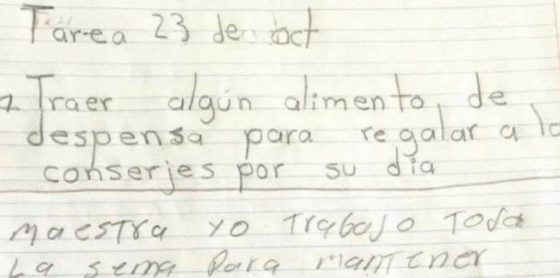 Tarea 23 de oct
1 Traer algún alimento, de
despensa para regalar a lo
conserjes por su día
maestra yo Trabajo Toda
La sema Para manTener